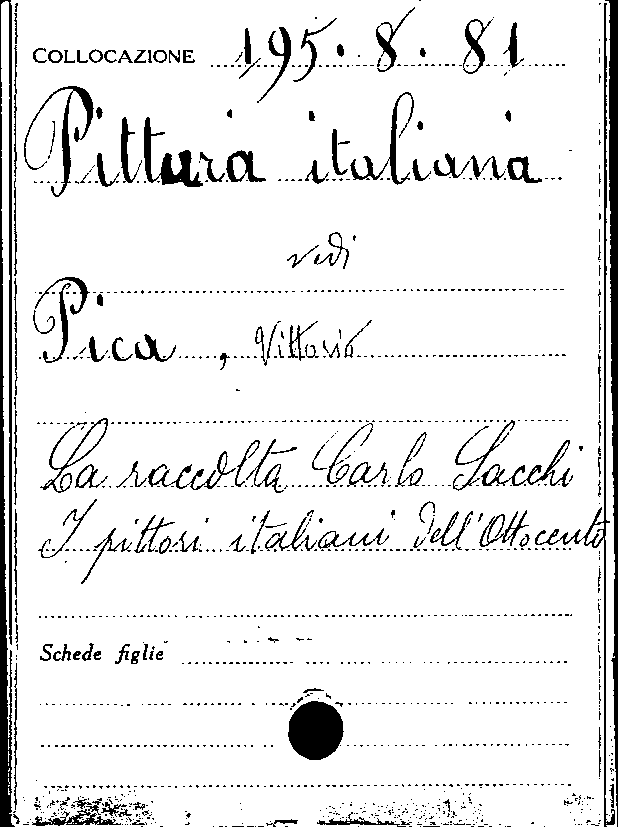 COLLOCAZIONE 195. 8. 81
Pittura italiana
vedi
Pica, Vittorio
La raccolta Carlo Sacchi
I pittori italiani dell'Ottocento
Schede figlie